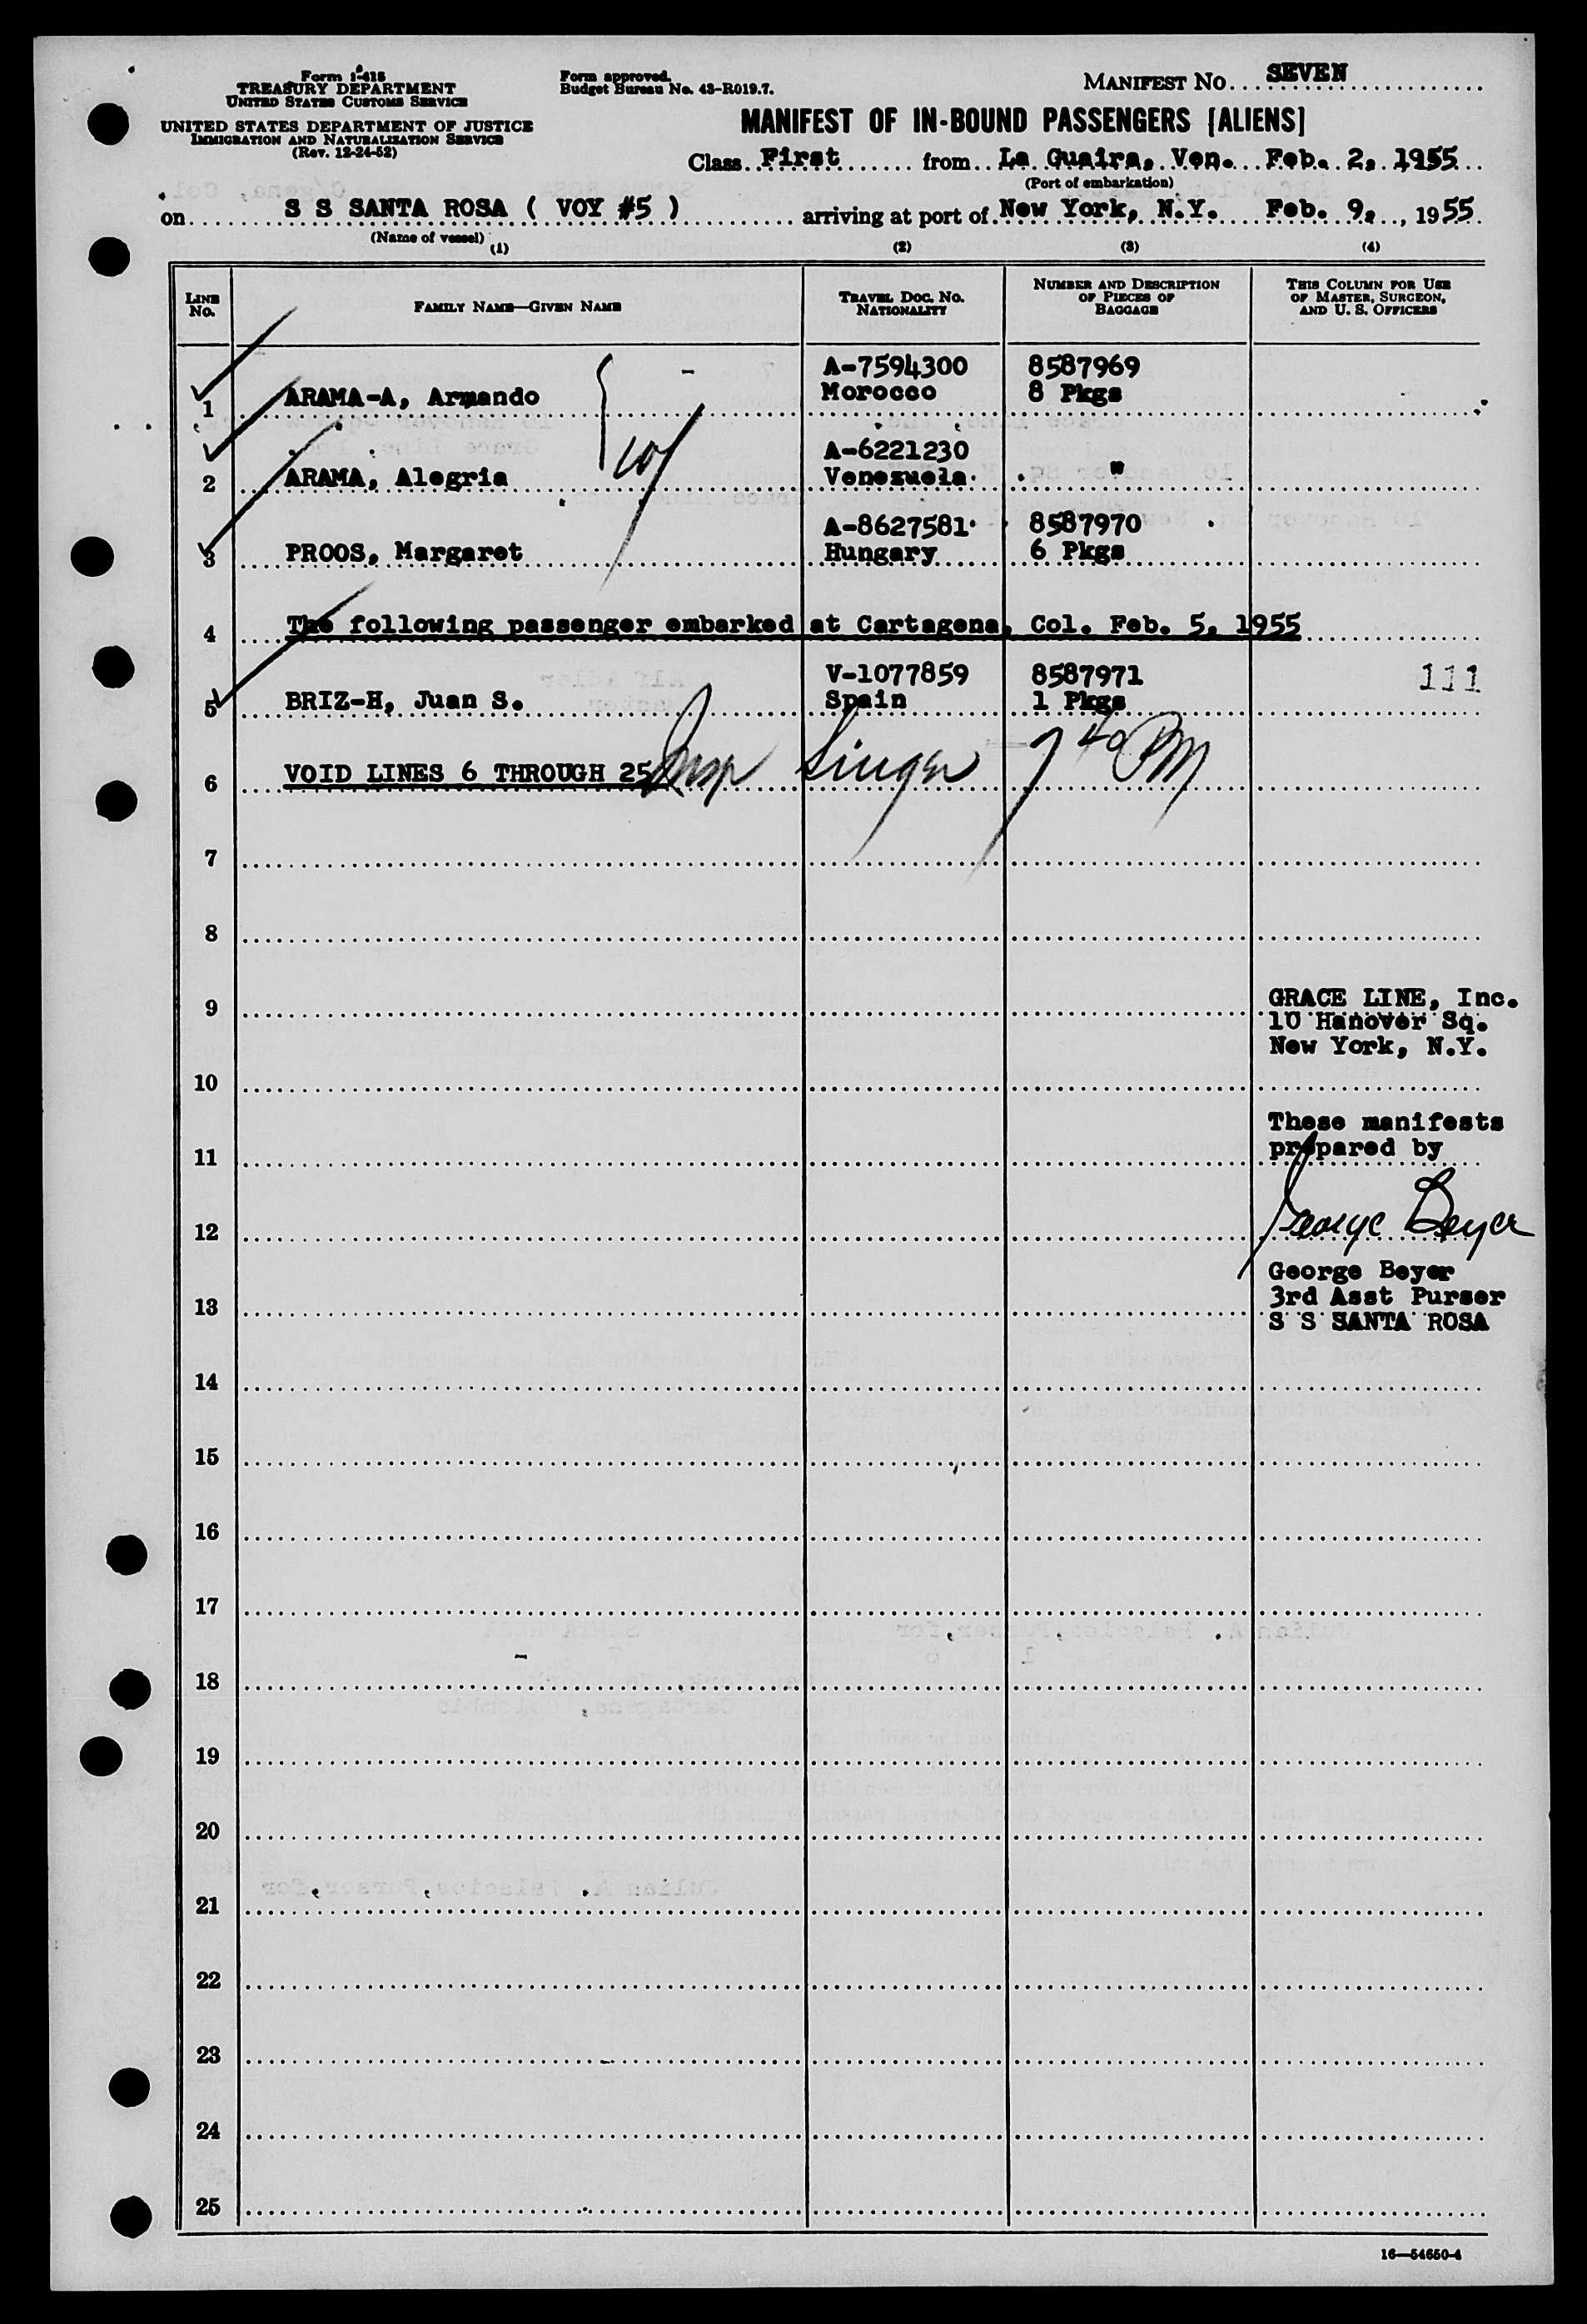 Form I-418
TREASURY DEPARTMENT
UNITED STATES CUSTOMS SERVICE
UNITED STATES DEPARTMENT OF JUSTICE
IMMIGRATION AND NATURALIZATION SERVICE
(Rev. 12-24-52)
Form approved.
Budget Bureau No. 43-R019.7.
MANIFEST NO. SEVEN
MANIFEST OF IN-BOUND PASSENGERS [ALIENS]
Class First from La Guaira, Ven. Feb. 2, 1955
(Port of embarkation)
on S S SANTA ROSA ( VOY #5 ) arriving at port of New York, N.Y. Feb. 9, 1955
(Name of vessel)
(1) (2) (3) (4)
LINE No. FAMILY NAME—GIVEN NAME TRAVEL DOC. NO. NATIONALITY NUMBER AND DESCRIPTION OF PIECES OF BAGGAGE THIS COLUMN FOR USE OF MASTER, SURGEON, AND U. S. OFFICERS
A-7594300 8587969
1 ARAMA-A, Armando Morocco 8 Pkgs
A-6221230
2 ARAMA, Alegria Venezuela "
A-8627581 8587970
3 PROOS, Margaret Hungary 6 Pkgs
4 The following passenger embarked at Cartagena, Col. Feb. 5, 1955
V-1077859 8587971 111
5 BRIZ-H, Juan S. Spain 1 Pkgs
6 VOID LINES 6 THROUGH 25 Insp Singer 7 40 PM
7
8
9 GRACE LINE, Inc.
10 Hanover Sq.
New York, N.Y.
10
These manifests
11 prepared by
12 George Beyer
George Beyer
13 3rd Asst Purser
S S SANTA ROSA
14
15
16
17
18
19
20
21
22
23
24
25
16—54650-4